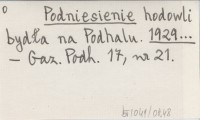 Podniesienie hodowli
bydła na Podhalu. 1929...
— Gaz. Podh. 17, nr 21.